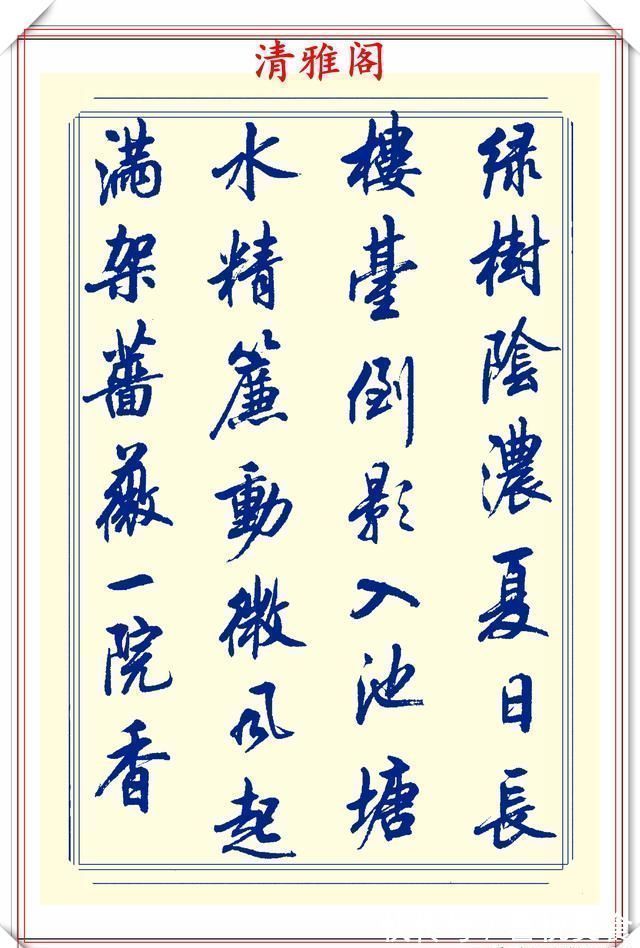 清雅阁
绿樹陰濃夏日長
樓臺倒影入池塘
水精簾動微风起
满架薔薇一院香